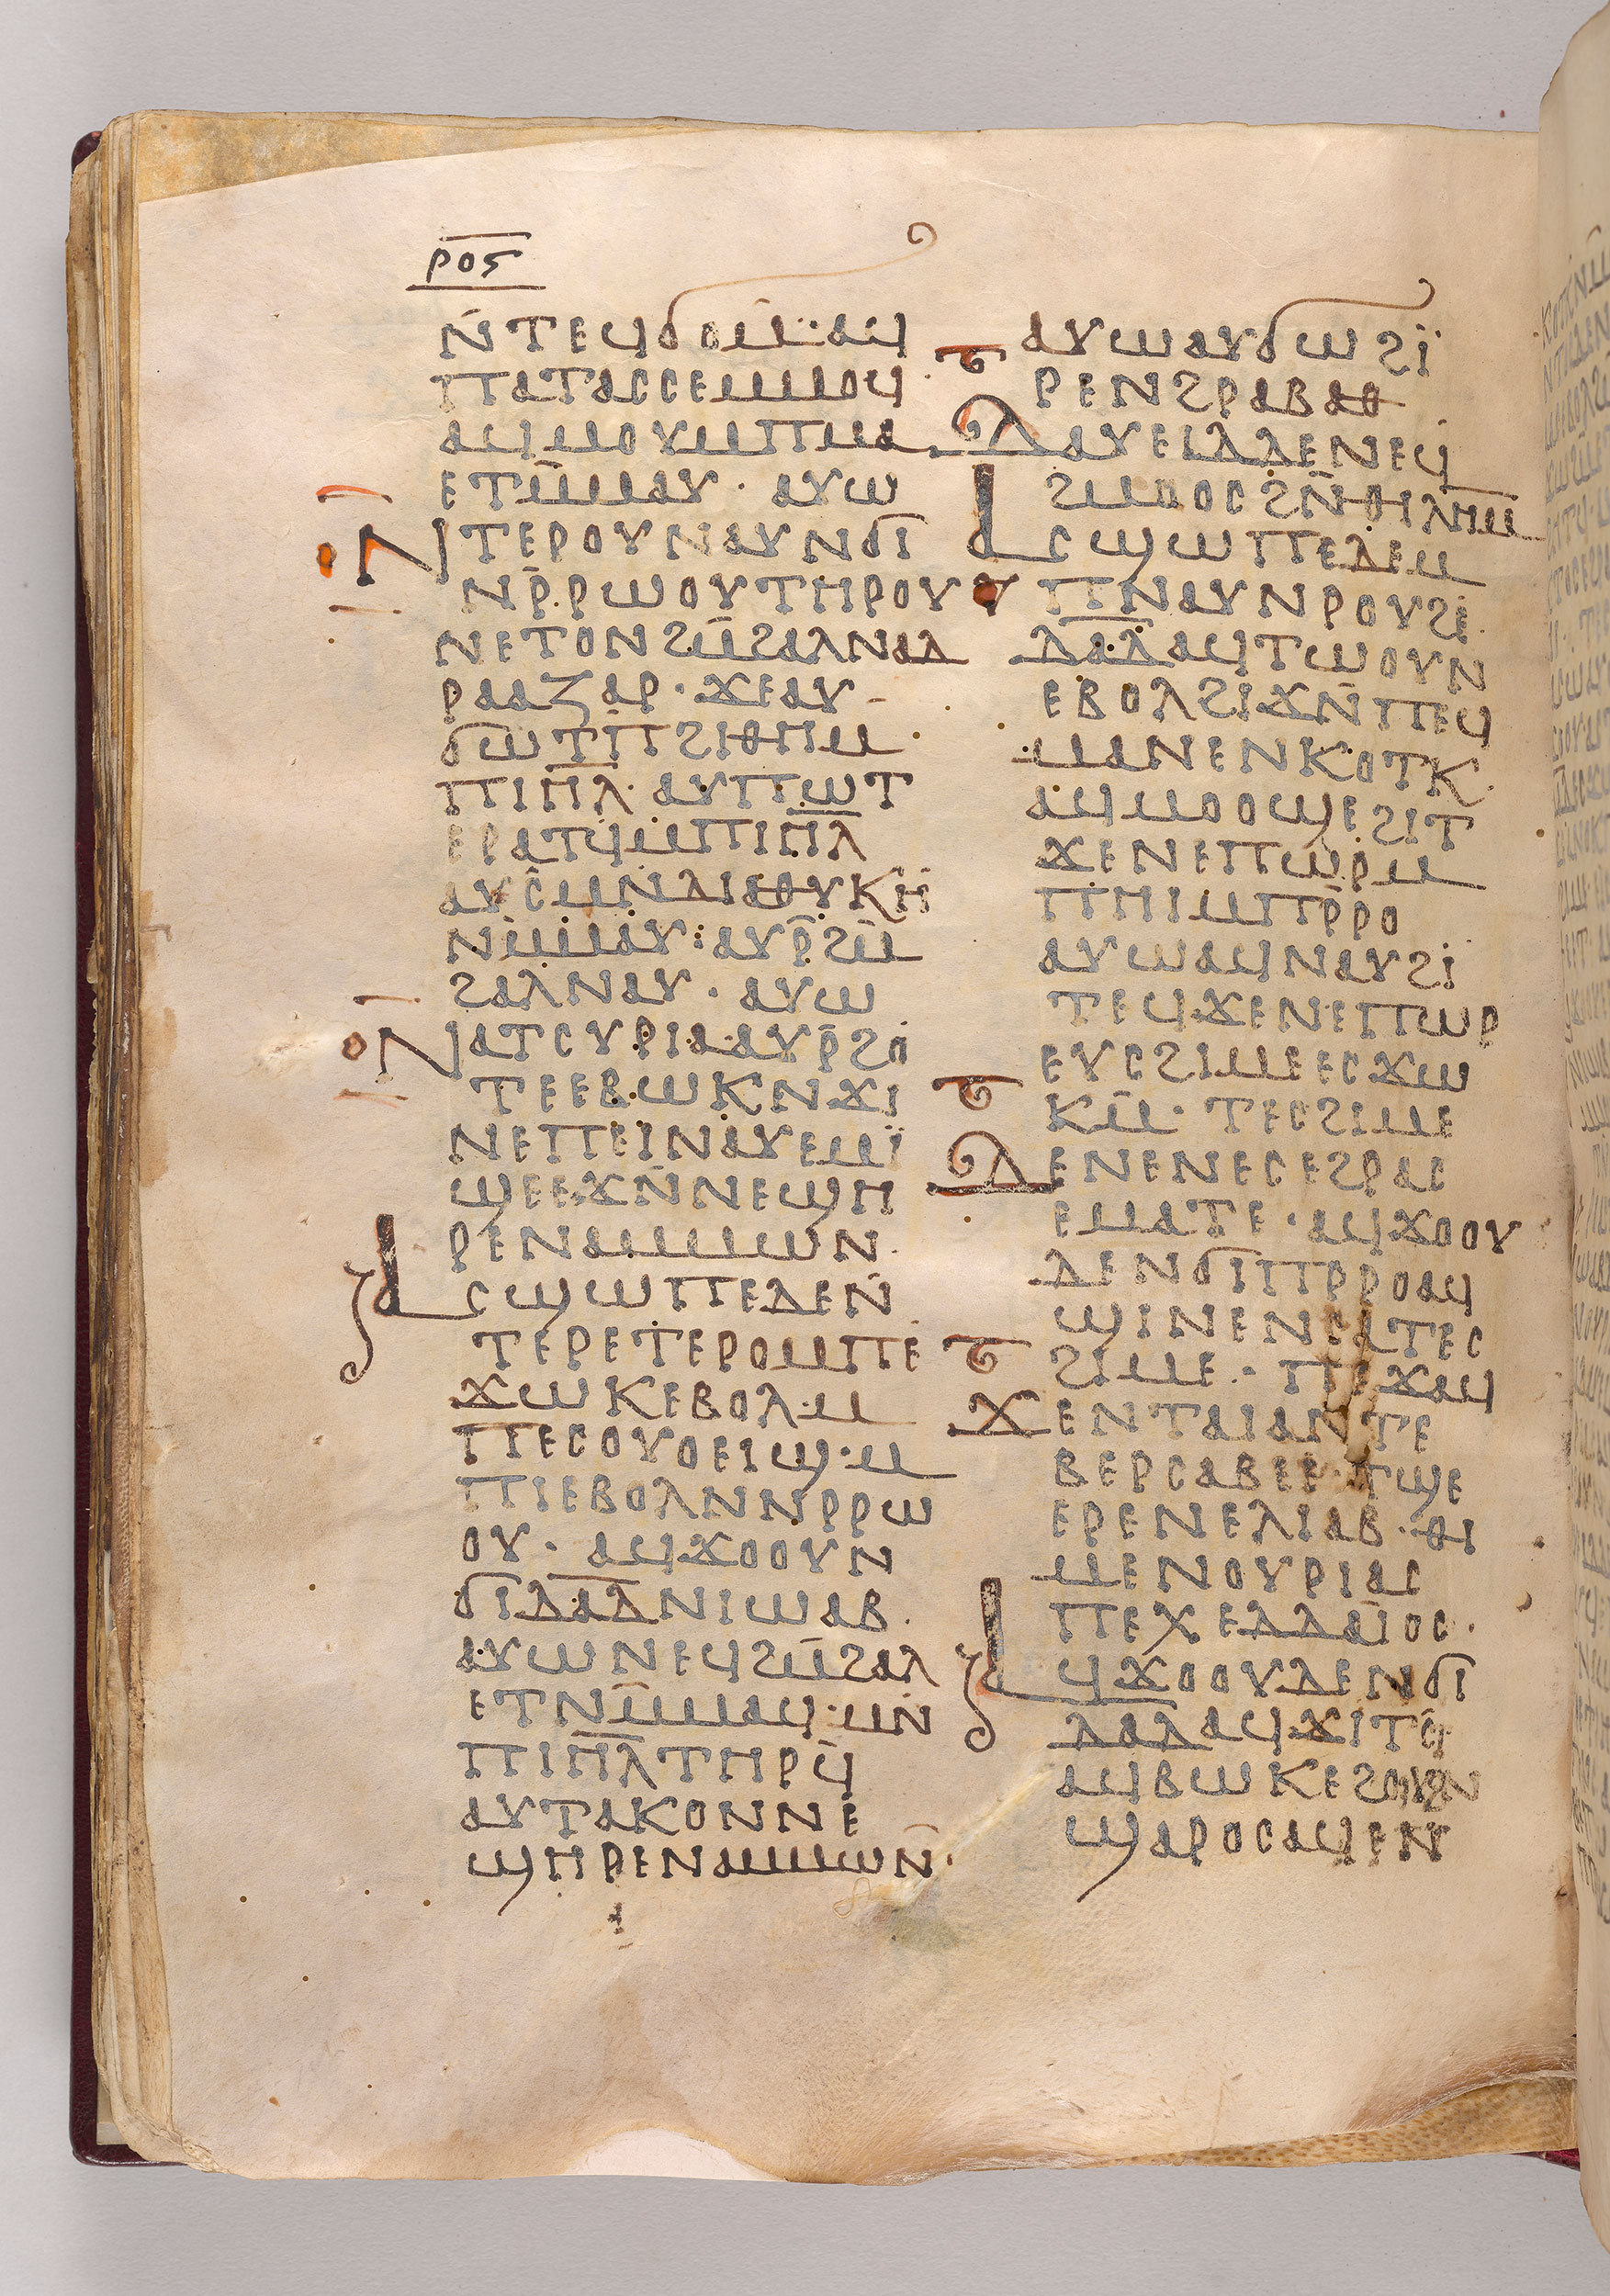 ⲣⲟⲋ
ⲛⲧⲉϥϭⲟⲙ̄· ⲁϥ
ⲡⲁⲧⲁⲥⲥⲉⲙⲙⲟϥ
ⲁϥⲙⲟⲩⲙ̄ⲡⲙⲁ
ⲉⲧⲙ̄ⲙⲁⲩ· ⲁⲩⲱ
ⲛⲧⲉⲣⲟⲩⲛⲁⲩⲛϭⲓ
ⲛⲣ̄ⲣⲱⲟⲩⲧⲏⲣⲟⲩ
ⲛⲉⲧⲟⲛϩⲙ̄ϩⲁⲗⲛⲁⲇ
ⲣⲁⲁⲍⲁⲣ· ϫⲉⲁⲩ
ϭⲱⲧⲡ̄ϩⲓⲑⲏⲙ
ⲡⲓⲏ̄ⲗ̄· ⲁⲩⲡⲱⲧ
ⲉⲣⲁⲧϥⲙ̄ⲡⲓⲏ̄ⲗ̄
ⲁⲩⲥⲙⲛⲇⲓⲁⲑⲩⲕⲏ
ⲛⲙ̄ⲙⲁⲩ: ⲁⲩⲣ̄ϩⲙ̄
ϩⲁⲗⲛⲁⲩ· ⲁⲩⲱ
ⲛⲁⲧⲥⲩⲣⲓⲁ·ⲁⲩⲣ̄ϩⲟ
ⲧⲉⲉⲃⲱⲕⲛ̄ϫⲓ
ⲛⲉⲡⲉⲓⲛⲁⲩⲉⲙⲓ̈
ϣⲉⲉϫⲛ̄ⲛⲉϣⲏ
ⲣⲉⲛⲁⲙⲙⲱⲛ·
ⲁⲥϣⲱⲡⲉⲇⲉⲛ̄
ⲧⲉⲣⲉⲧⲉⲣⲟⲙⲡⲉ
ϫⲱⲕⲉⲃⲟⲗ·ⲙ
ⲡⲉⲥⲟⲩⲟⲉⲓϣ·ⲙ
ⲡⲓⲉⲃⲟⲗⲛⲛⲣⲣⲱ
ⲟⲩ· ⲁϥϫⲟⲟⲩⲛ
ϭⲓⲇ̄ⲁ̄ⲇ̄ⲛⲓⲱⲁⲃ·
ⲁⲩⲱⲛⲉϥϩⲙ̄ϩⲁⲗ
ⲉⲧⲛⲙ̄ⲙⲁϥ·ⲙⲛ̄
ⲡⲓⲏ̄ⲗ̄ⲧⲏⲣϥ
ⲁⲩⲧⲁⲕⲟⲛⲛⲉ
ϣⲏⲣⲉⲛⲁⲙⲙⲱⲛ̄·
ⲁⲩⲱⲁⲩϭⲱϩⲓ̈
ⲣⲉⲛϩⲣⲁⲃⲁⲑ
ⲇⲁⲩⲉⲓⲇⲇⲉⲛⲉϥ
ϩⲙⲟⲟⲥϩⲛ̄ⲑⲓⲗ̄ⲏ̄ⲙ̄
ⲁⲥϣⲱⲡⲉⲇⲉⲙ
ⲡⲛⲁⲩⲛⲣⲟⲩϩⲉ
ⲇ̄ⲁ̄ⲇ̄ⲁϥⲧⲱⲟⲩⲛ
ⲉⲃⲟⲗϩⲓϫⲛ̄ⲡⲉϥ
ⲙⲁⲛⲉⲛⲕⲟⲧⲕ
ⲁϥⲙⲟⲟϣⲉϩⲓⲧ
ϫⲉⲛⲉⲡⲱⲣⲙ
ⲡⲏⲓⲙⲡⲣ̄ⲣⲟ
ⲁⲩⲱⲁϥⲛⲁⲩϩⲓ
ⲧⲉϥϫⲉⲛⲉⲡⲱⲣ
ⲉⲩⲥϩⲓⲙⲉⲉⲥϫⲱ
ⲕⲙ̄· ⲧⲉⲥϩⲓⲙⲉ
ⲇⲉⲛⲉⲛⲉⲥⲉϩⲣⲁⲥ
ⲉⲙⲁⲧⲉ· ⲁϥϫⲟⲟⲩ
ⲇⲉⲛϭⲓⲡⲣⲣⲟⲁϥ
ϣⲓⲛⲉⲛⲥⲁⲧⲉⲥ
ϩⲓⲙⲉ· ⲡⲉϫⲁϥ
ϫⲉⲛⲧⲁⲓⲁⲛⲧⲉ
ⲃⲉⲣⲥⲁⲃⲉⲉ·ⲧϣⲉ
ⲉⲣⲉⲛⲉⲗⲓⲁⲃ·ⲑⲓ
ⲙⲉⲛⲟⲩⲣⲓⲁⲥ
ⲡⲉⲭⲉⲇⲇⲁⲓⲟⲥ·
ⲁϥϫⲟⲟⲩⲇⲉⲛϭⲓ
ⲇ̄ⲁ̄ⲇ̄ⲁϥϫⲓⲧⲥ̄
ⲁϥⲃⲱⲕⲉϩⲟⲩⲛ
ϣⲁⲣⲟⲥⲁϥⲉⲛ